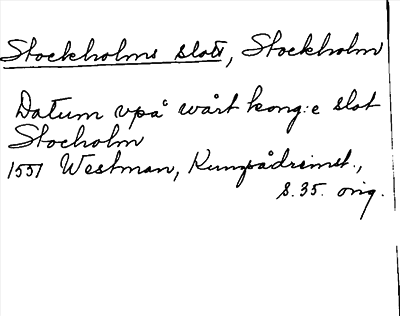 Stockholms slott, Stockholm
Datum vpå wårt kong:e slot
Stocholm
1551 Westman, Kungsådreinst.,
s. 35. orig.